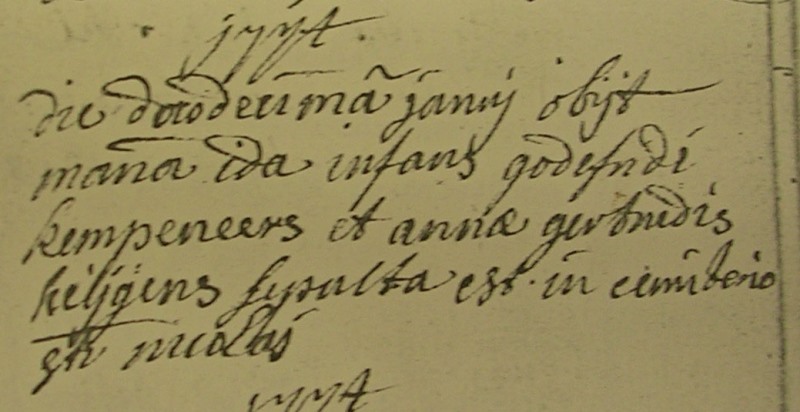 die duodecima januy obijt
maria ida infans godefridi
kempeneers et annæ gertrudis
heijgens sepulta est in cemiterio
sti nicolai